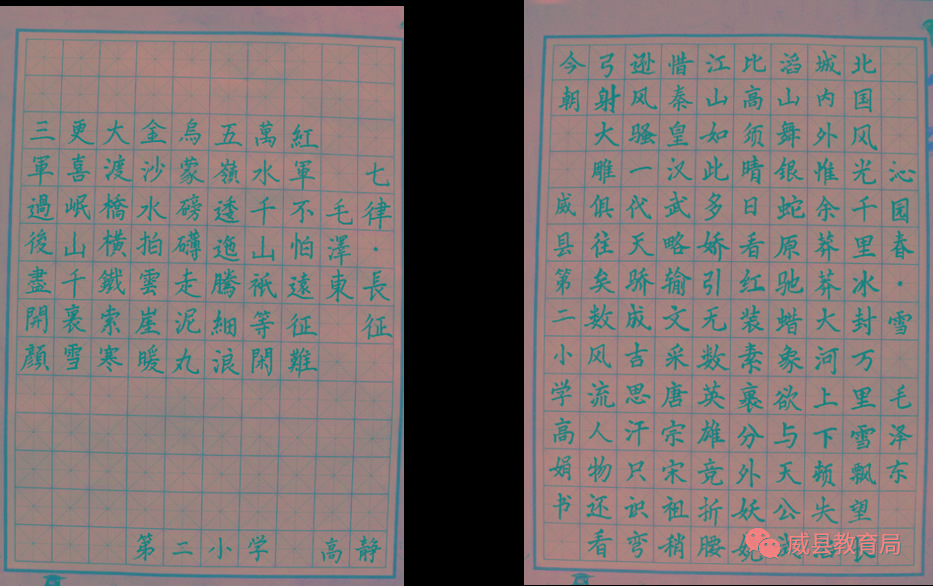 七律·長征
毛澤東
紅軍不怕遠征難
萬水千山衹等閑
五嶺逶迤騰細浪
烏蒙磅礴走泥丸
金沙水拍雲崖暖
大渡橋橫鐵索寒
更喜岷山千裏雪
三軍過後盡開顏
第二小学 高静
沁园春·雪 毛泽东
北国风光千里冰封万里雪飘望长
城内外惟余莽莽大河上下顿失
滔山舞银蛇原驰蜡象欲与天公
比高须晴日看红装素裹分外妖娆
江山如此多娇引无数英雄竞折腰
惜秦皇汉武略输文采唐宗宋祖稍
逊风骚一代天骄成吉思汗只识弯
弓射大雕俱往矣数风流人物还看
今朝 威县第二小学高娟书
威县教育局